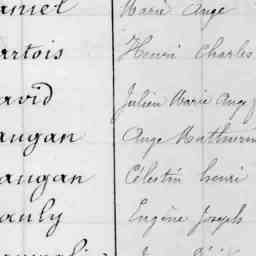 aniel Marie Ange
artois Henri Charles
avid Julien Marie Ange
augan Ange Mathurin
augan Célestin henri
auly Eugène Joseph